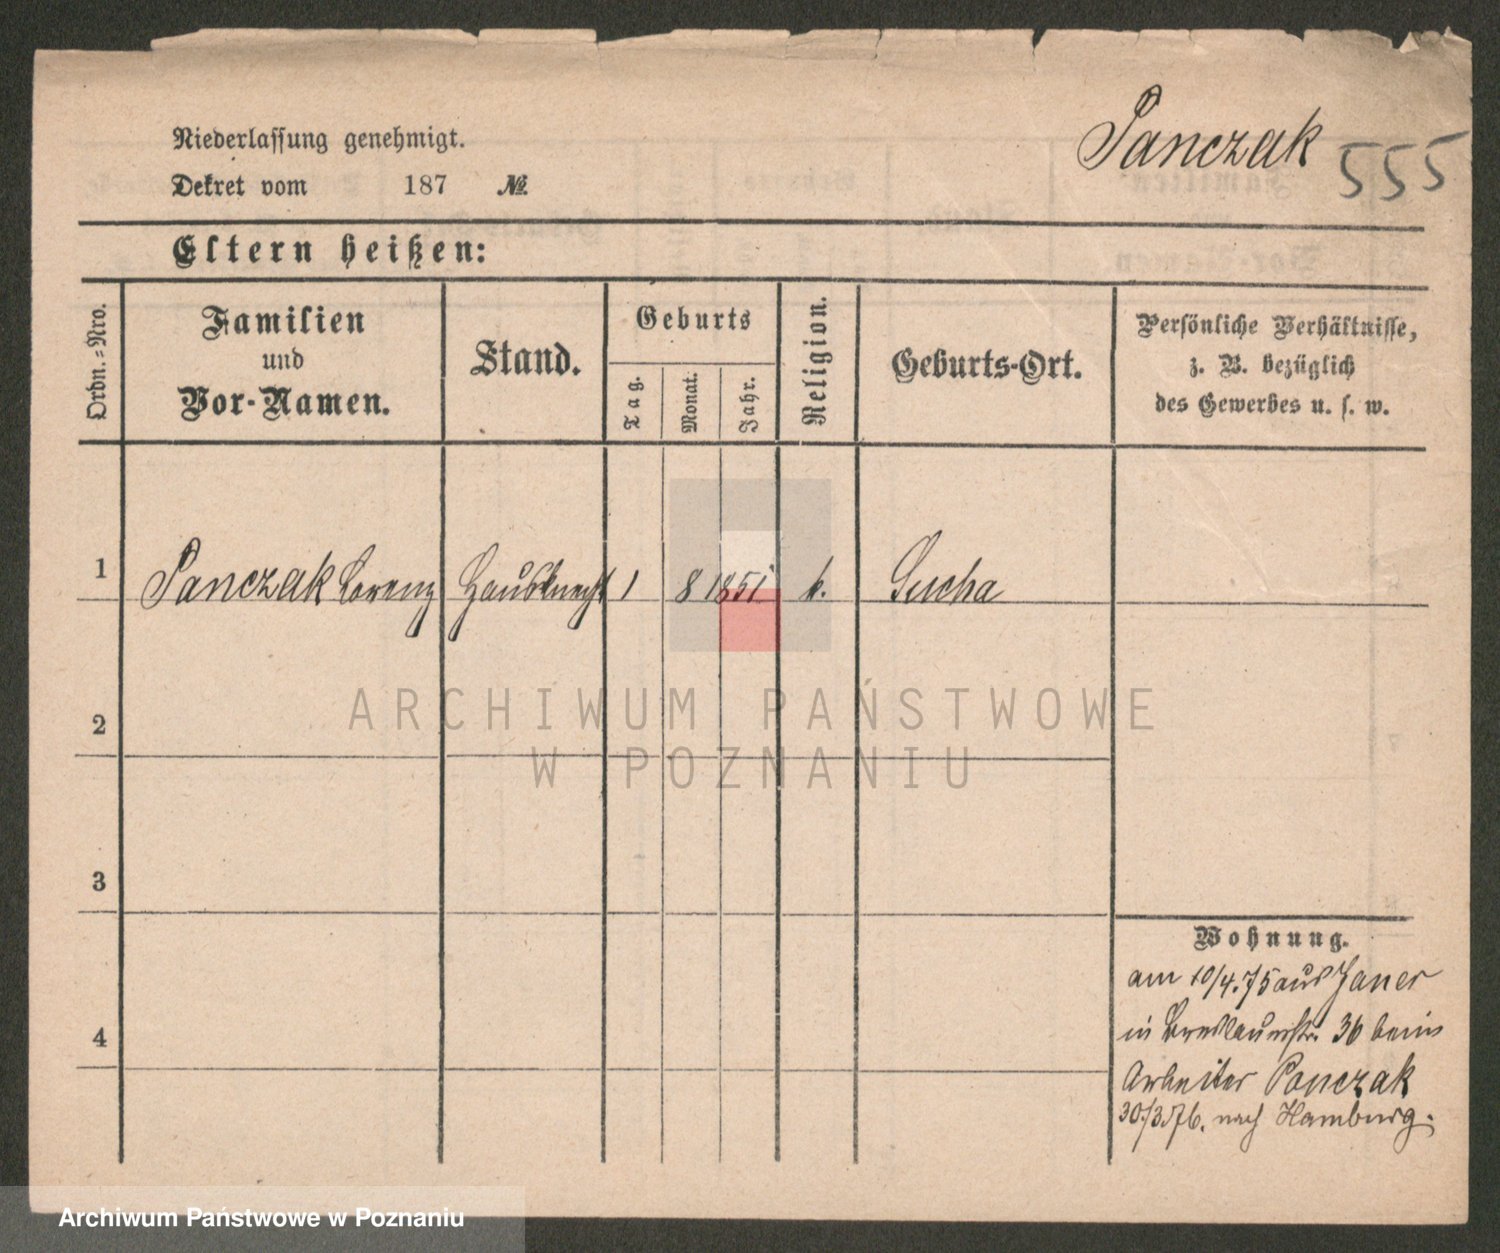 Panczak 555
Niederlassung genehmigt.
Dekret vom 187 №
Eltern heißen:
Ordn.=Nro.
Familien
und
Vor-Namen.
Stand.
Geburts
Tag.
Monat.
Jahr.
Religion.
Geburts-Ort.
Persönliche Verhältnisse,
z. B. bezüglich
des Gewerbes u. s. w.
1 Panczak Lorenz Hausknecht 1 8 1851 k. Sucha
2
3
4
Wohnung.
am 10/4.75 aus Janer
in Breslauerstr. 36 beim
Arbeiter Panczak
30/3.76. nach Hamburg.
ARCHIWUM PAŃSTWOWE
W POZNANIU
Archiwum Państwowe w Poznaniu